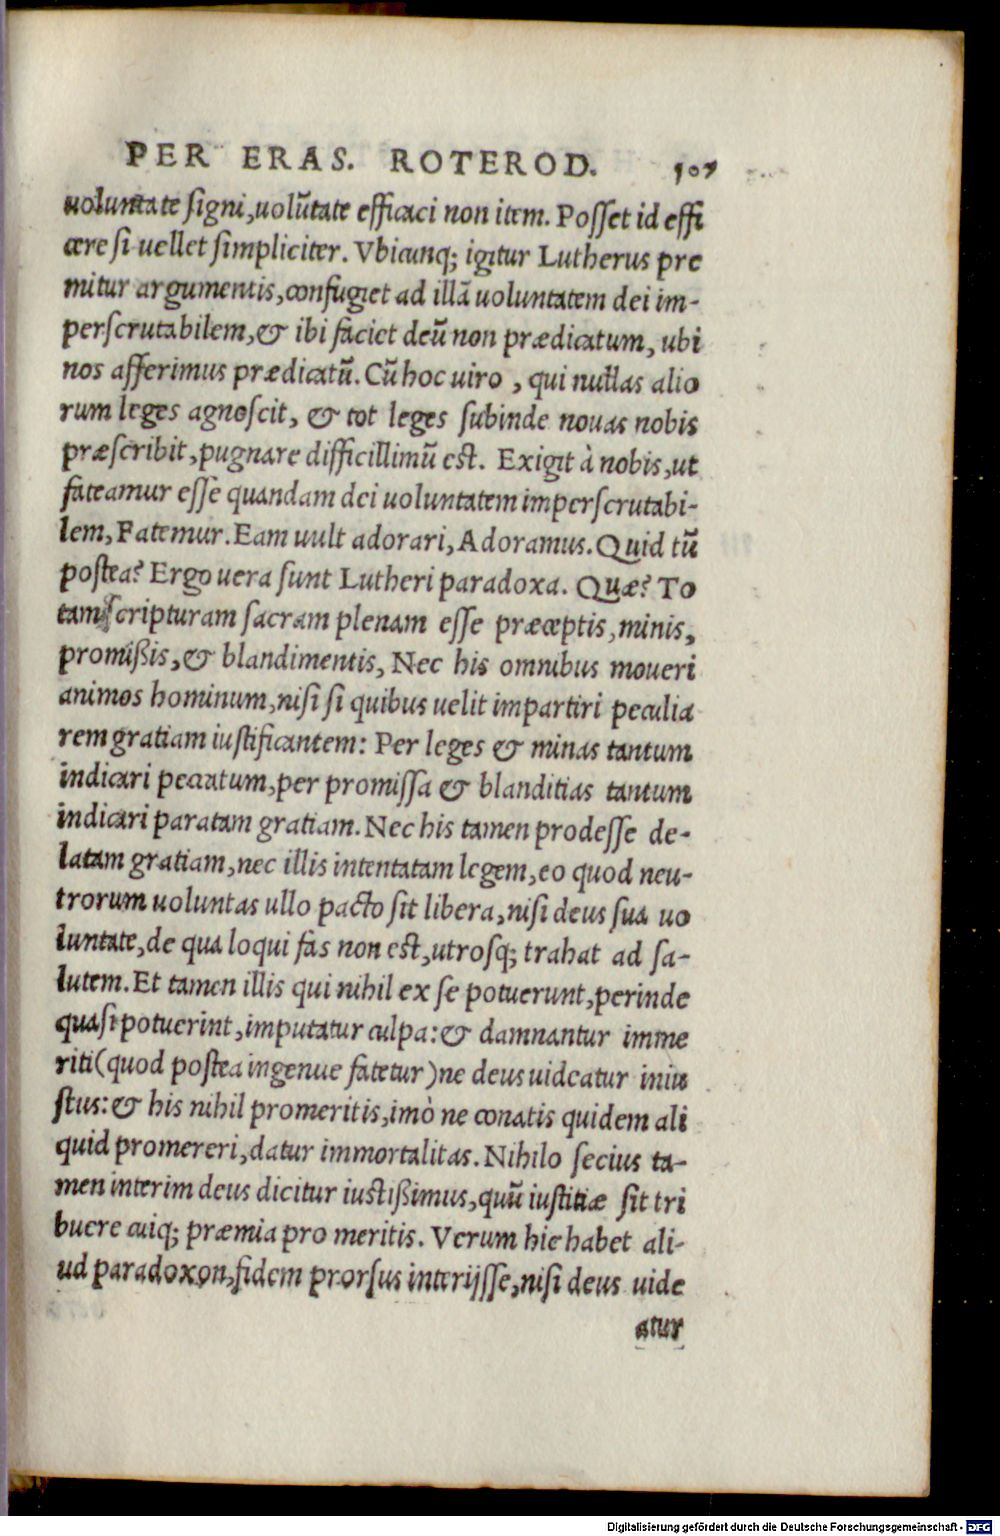 PER ERAS. ROTEROD. 507
uoluntate signi, uolũtate efficaci non item. Posset id effi
cere si uellet simpliciter. Vbicunq; igitur Lutherus pre
mitur argumentis, confugiet ad illã uoluntatem dei im-
perscrutabilem, & ibi faciet deũ non prædicatum, ubi
nos afferimus prædicatũ. Cũ hoc uiro, qui nullas alio
rum leges agnoscit, & tot leges subinde nouas nobis
præscribit, pugnare difficillimũ est. Exigit à nobis, ut
fateamur esse quandam dei uoluntatem imperscrutabi-
lem, Fatemur. Eam uult adorari, Adoramus. Quid tũ
postea? Ergo uera sunt Lutheri paradoxa. Quæ? To
tam scripturam sacram plenam esse præceptis, minis,
promißis, & blandimentis, Nec his omnibus moueri
animos hominum, nisi si quibus uelit impartiri peculia
rem gratiam iustificantem: Per leges & minas tantum
indicari peccatum, per promissa & blanditias tantum
indicari paratam gratiam. Nec his tamen prodesse de-
latam gratiam, nec illis intentatam legem, eo quod neu-
trorum uoluntas ullo pacto sit libera, nisi deus sua uo
luntate, de qua loqui fas non est, utrosq; trahat ad sa-
lutem. Et tamen illis qui nihil ex se potuerunt, perinde
quasi potuerint, imputatur culpa: & damnantur imme
riti (quod postea ingenue fatetur) ne deus uideatur iniu
stus: & his nihil promeritis, imò ne conatis quidem ali
quid promereri, datur immortalitas. Nihilo secius ta-
men interim deus dicitur iustißimus, quũ iustitiæ sit tri
buere cuiq; præmia pro meritis. Verum hic habet ali-
ud paradoxon, fidem prorsus interijsse, nisi deus uide
atur
Digitalisierung gefördert durch die Deutsche Forschungsgemeinschaft - DFG